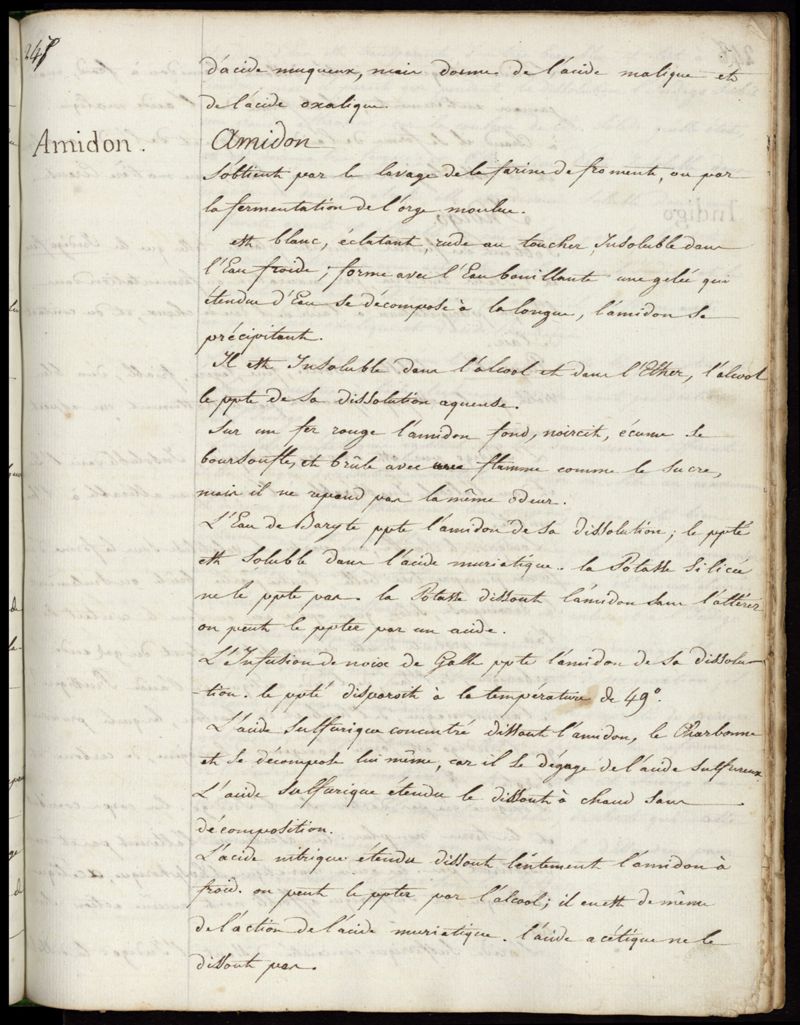 247
d'acide muqueux, mais donne de l'acide malique et
de l'acide oxalique.
Amidon.
Amidon
S'obtient par le lavage de la farine de froment, ou par
la fermentation de l'orge moulue.
est blanc, éclatant, rude au toucher, Insoluble dans
l'Eau froide; forme avec l'Eau bouillante une gelée qui
étendue d'Eau se décompose à la longue, l'amidon se
précipitant.
Il est Insoluble dans l'alcool et dans l'Ether, l'alcool
le ppte de sa dissolution aqueuse.
Sur un fer rouge l'amidon fond, noircit, écume se
boursoufle, et brûle avec une flamme comme le sucre,
mais il ne repand pas la même odeur.
L'Eau de Baryte ppte l'amidon de sa dissolution; le ppté
est soluble dans l'acide muriatique. la Potasse Silicée
ne le ppte pas. la Potasse dissout l'amidon sans l'altérer
on peut le ppter par un acide.
L'Infusion de noix de Galle ppte l'amidon de sa dissolu-
tion. le ppté disparoit à la température de 49°.
L'acide sulfurique concentré dissout l'amidon, le Charbonne
et se décompose lui même, car il se dégage de l'acide sulfureux.
L'acide sulfurique étendu le dissout à chaud sans
décomposition.
L'acide nitrique étendu dissout lentement l'amidon à
froid. on peut le ppter par l'alcool; il en est de même
de l'action de l'acide muriatique. l'acide acétique ne le
dissout pas.